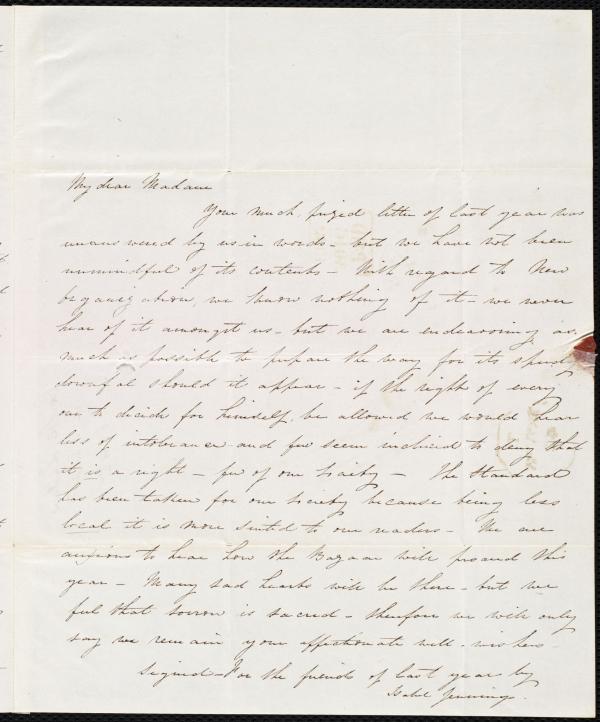 My dear Madam
Your much prized letter of last year was
unanswered by us in words - but we have not been
unmindful of its contents - With regard to New
organization, we know nothing of it - we never
hear of it amongst us - but we are endeavoring as
much as possible to prepare the way for its speedy
downfal should it appear - if the right of every
one to decide for himself, be allowed we would hear
less of intolerance and few seem inclined to deny that
it is a right - few of our Society - The Standard
has been taken for our Society because being less
local it is more suited to our readers - We are
anxious to hear how the Bazaar will proceed this
year - Many sad hearts will be there - but we
feel that sorrow is sacred - therefore we will only
say we remain your affectionate well-wishers -
Signed - For the friends of last year by
Isabel Jennings.